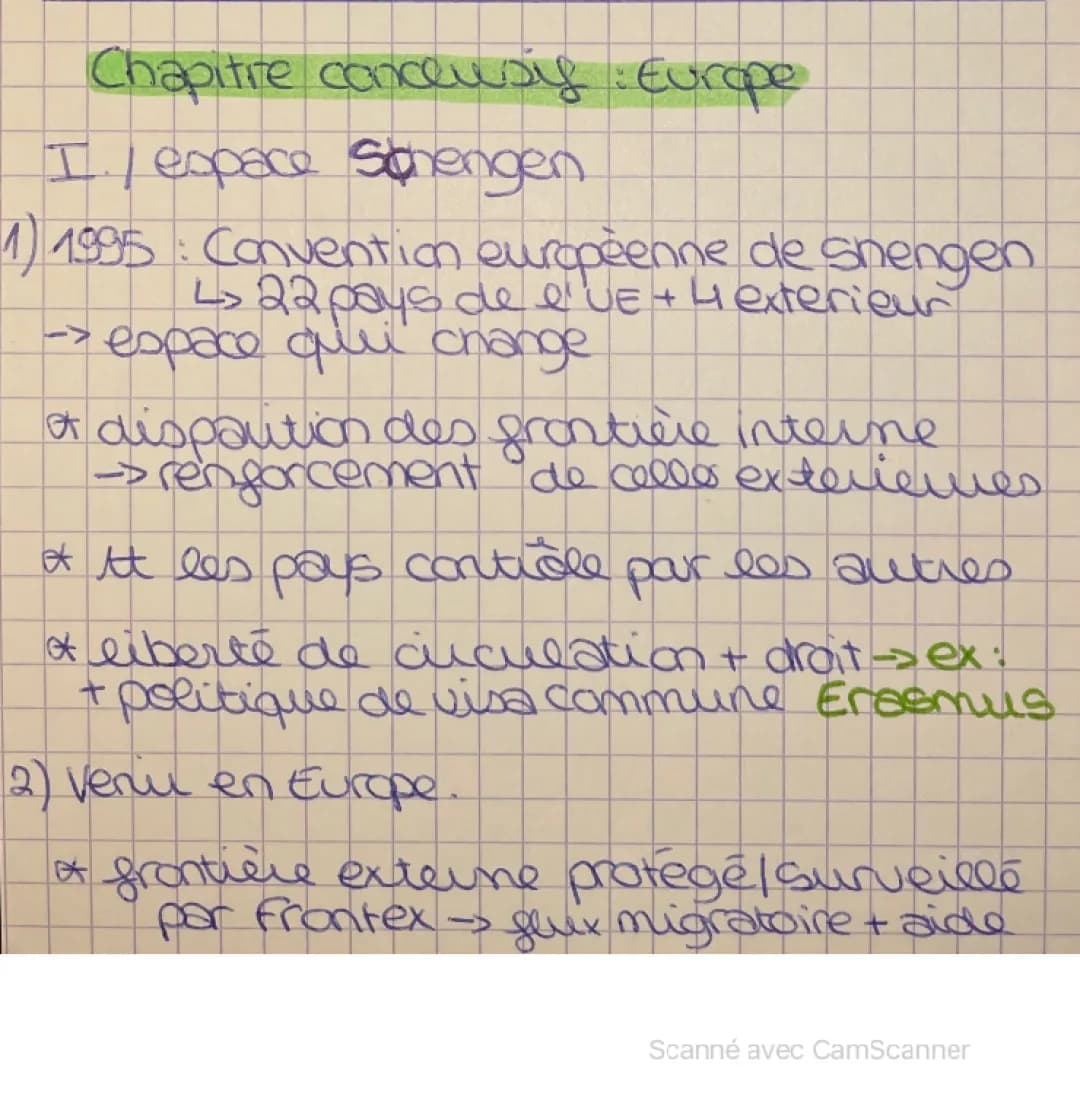 Chapitre conclusif : Europe
I./ espace Schengen
1) 1995 : Convention européenne de shengen
↳ 22 pays de l'UE + 4 exterieur
-> espace qui change
* disparition des frontière interne
-> renforcement de celles exterieures
* tt les pays contrôle par les autres
* liberté de circulation + droit -> ex :
+ politique de visa commune Erasmus
2) Venir en Europe.
* frontière externe protégé/surveillé
par Frontex -> flux migratoire + aide
Scanné avec CamScanner